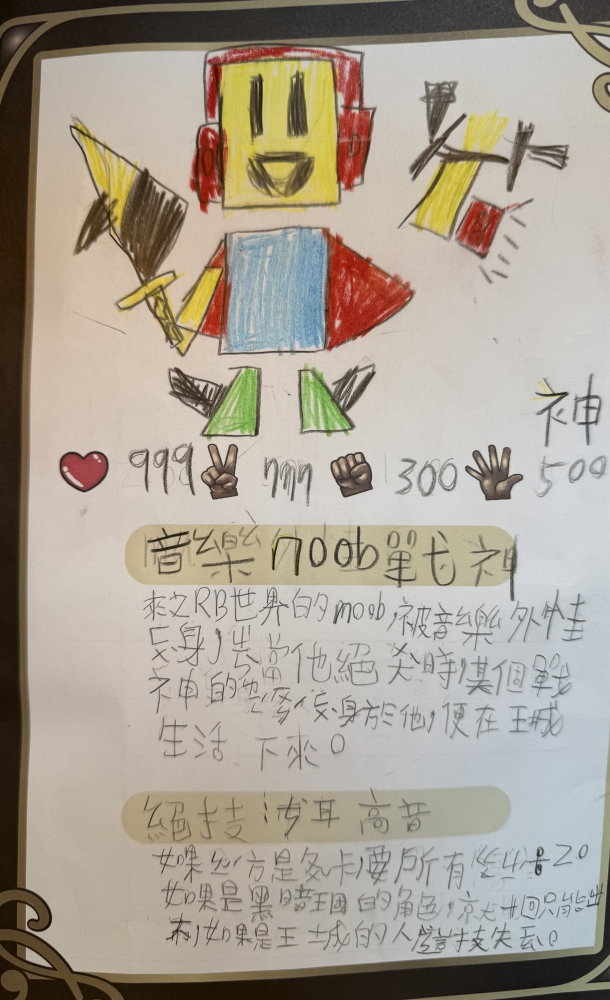 神
999 777 300 500
音樂noob單戈神
來之RB世界的noob,被音樂外
身,當他絕時,某個戰
神的身於他,便在王城
生活下來。
絕技 耳高音
如果方是多卡,要所有 20
如果是黑暗王國的角色,只能出
,如果是王城的人 技失